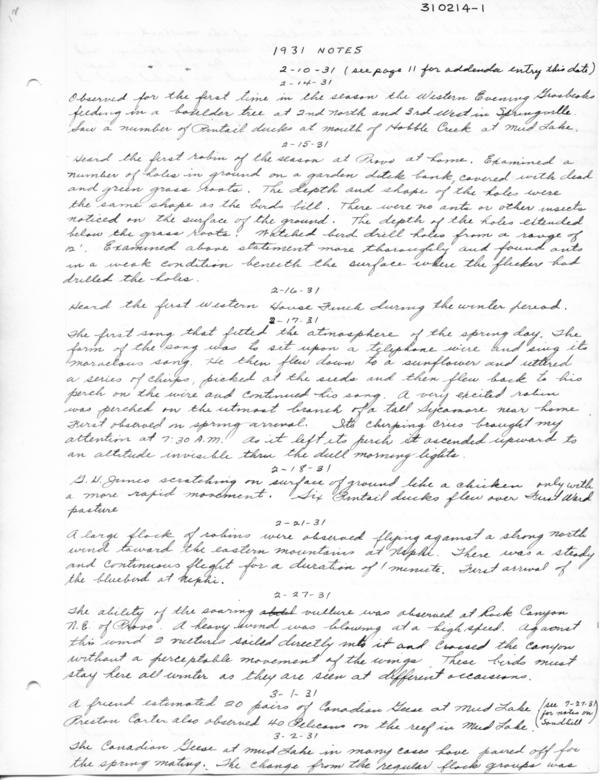 310214-1
1931 NOTES
2-10-31 (see page 11 for addenda entry this date)
2-14-31
Observed for the first time in the season the Western Evening Grosbeaks
feeding in a boxelder tree at 2nd North and 3rd West in Springville.
Saw a number of Pintail ducks at mouth of Hobble Creek at Mud Lake.
2-15-31
Heard the first robin of the season at Provo at home. Examined a
number of holes in ground on a garden ditch bank, covered with dead
and green grass roots. The depth and shape of the holes were
the same shape as the birds bill. There were no ants or other insects
noticed on the surface of the ground. The depth of the holes extended
below the grass roots. Watched bird drill holes from a range of
12'. Examined above statement more thoroughly and found ants
in a weak condition beneath the surface where the flicker had
drilled the holes.
2-16-31
Heard the first Western House Finch during the winter period.
2-17-31
The first song that fitted the atmosphere of the spring day. The
form of the song was to set upon a telyphone wire and sing its
marvelous song. He then flew down to a sunflower and uttered
a series of chirps, picked at the seeds and then flew back to his
perch on the wire and continued his song. A very excited robin
was perched on the utmost branch of a tall Sycamore near home
First observed on spring arrival. Its chirping cries brought my
attention at 7:30 A.M. As it left its perch it ascended upward to
an altitude invisible thru the dull morning lights.
2-18-31
G. W. Juncos scratching on surface of ground like a chicken only with
a more rapid movement. Six Pintail ducks flew over First Ward
pasture
2-21-31
A large flock of robins were observed flying against a strong north
wind toward the eastern mountains at Nephi. There was a steady
and continuous flight for a duration of 1 minute. First arrival of
the bluebird at Nephi.
2-27-31
The ability of the soaring vulture was observed at Rock Canyon
N.E. of Provo. A heavy wind was blowing at a high speed. Against
this wind 2 vultures sailed directly into it and crossed the canyon
without a perceptable movement of the wings. These birds must
stay here all winter as they are seen at different occasions.
3-1-31
A friend estimated 20 pairs of Canadian Geese at Mud Lake
Preston Carter also observed 40 Pelicans on the reef in Mud Lake.
(see 7-27-31
for notes on
Sandhill)
3-2-31
The Canadian Geese at Mud Lake in many cases have paired off for
the spring mating. The change from the regular flock groups was